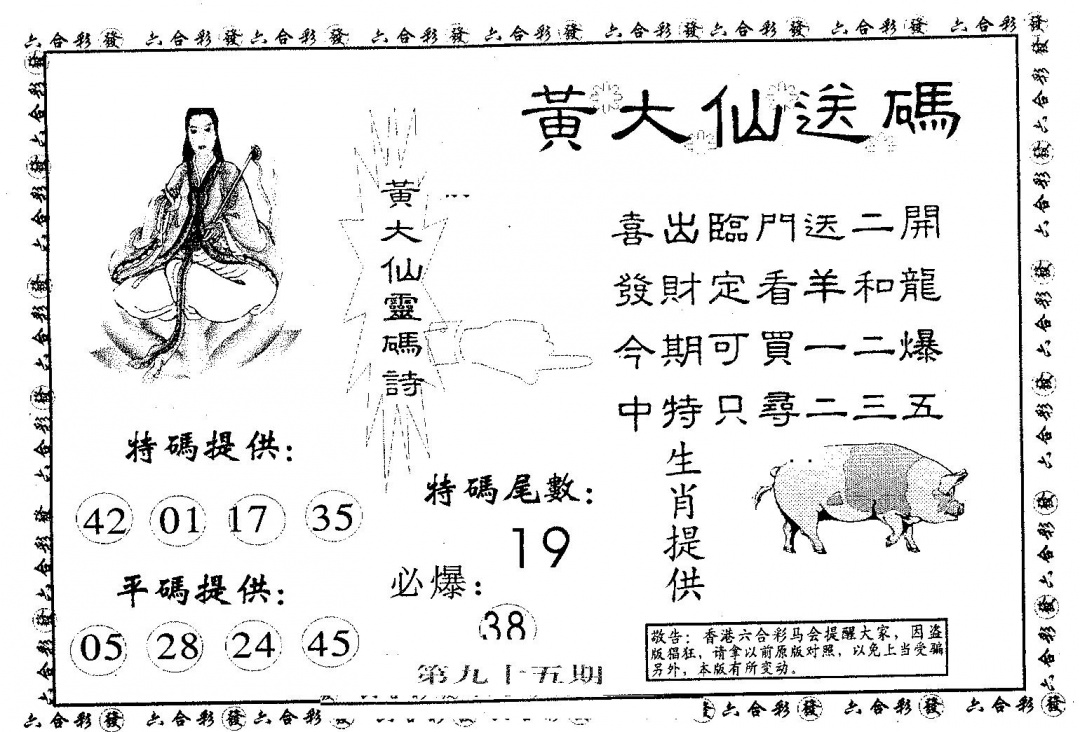 六合彩發 六合彩發六合彩發 六合彩發 六合彩發 六合彩發六合彩發 六合彩發 六合彩發
黃大仙送碼
黃大仙靈碼詩
喜出臨門送二開
發財定看羊和龍
今期可買一二爆
中特只尋二三五
特碼提供：
42 01 17 35
平碼提供：
05 28 24 45
特碼尾數：
19
必爆：
38
生肖提供
敬告：香港六合彩马会提醒大家，因盗
版猖狂，请拿以前原版对照，以免上当受骗
另外，本版有所变动。
第九十五期
六合彩發 六合彩發六合彩發 六合彩發 六合彩發 六合彩發